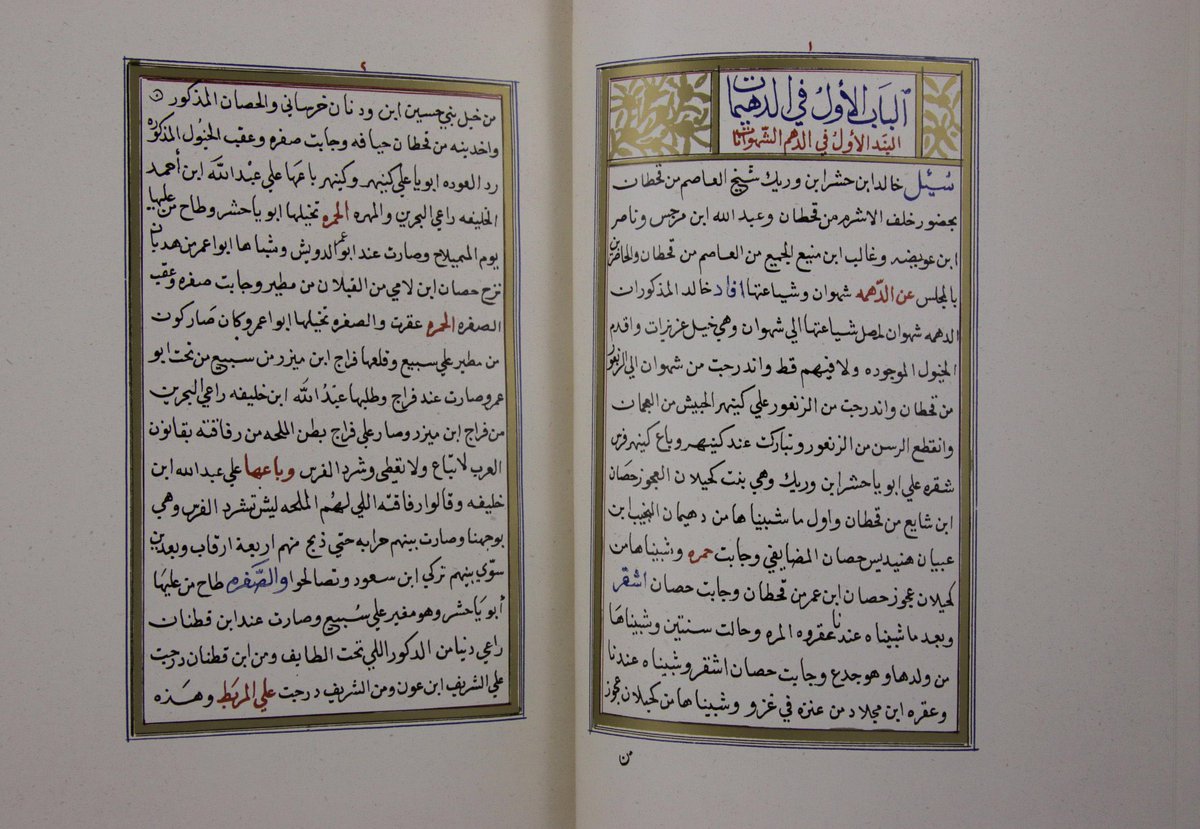 ١
الباب الأول في الدهيمات
البند الأول في الدهم الشهوانات
سُئِل خالد ابن حشر ابن وريك شيخ العاصم من قحطان
بحضور خلف الاشرم من قحطان وعبد الله ابن مرجس وناصر
ابن عويضه وغالب ابن منيع الجميع من العاصم من قحطان والحاضرين
بالمجلس عن الدّهمه شهوان وشياعتها افاد خالد المذكور ان
الدهمه شهوان اصل شياعتها الي شهوان وهي خيل عزيزات واقدم
الخيول الموجوده ولا فيهم قط واندرجت من شهوان الي الزنعور
من قحطان واندرجت من الزنعور علي كنيهر الجبيش من العجمان
وانقطع الرسن من الزنعور وتباركت عند كنيهر وباع كنيهر فرس
شقره علي ابو يا حشر ابن وريك وهي بنت كحيلان العجوز حصان
ابن شايع من قحطان واول ما شبيناها من دهيمان النجيب ابن
عبيان هنيديس حصان المضايفي وجابت حمره وشبيناها من
كحيلان عجوز حصان ابن عمر من قحطان وجابت حصان اشقر
وبعد ما شبيناه عندنا عقروه المره وحالت سنتين وشبيناها
من ولدها وهو جدع وجابت حصان اشقر وشبيناه عندنا
وعقره ابن مجلاد من عنزه في غزو وشبيناها من كحيلان عجوز
من
٢
من خيل بني حسين ابن ودنان خرساني والحصان المذكور
واخدينه من قحطان حيافه وجابت صفره وعقب الخيول المذكوره
رد العوده ابو يا علي كنيهر وكنيهر باعها علي عبد الله ابن أحمد
الخليفه راعي البحرين والمهره الحمره تخيلها ابو يا حشر وطاح من عليها
يوم المنيسلاح وصارت عند ابو عمر الدويش وشباها ابو اعمر من هدبان
نزح حصان ابن لامي من القبلان من مطير وجابت صفره وعقب
الصفره الحمره عقرت والصفره تخيلها ابو اعمر وكان صار كون
من مطير علي سبيع وقلعها فراج ابن ميزر من سبيع من تحت ابو
عمر وصارت عند فراج وطلبها عبد الله ابن خليفه راعي البحرين
من فراج ابن ميزر وصار علي فراج بطن الملحه من رفاقته بقانون
العرب لا تباع ولا تقطى وشرد الفرس وباعها علي عبد الله ابن
خليفه وقالوا رفاقته اللي لهم الملحه ليش تشرد الفرس وهي
بوجهنا وصارت بينهم حرابه حتي ذبح منهم اربعة ارقاب وبعدين
سوّي بينهم تركي ابن سعود وتصالحوا والصّفره طاح من عليها
أبو يا حشر وهو مغير علي سُبيع وصارت عند ابن قطنان
راعي دنيا من الدكور اللي تحت الطايف ومن ابن قطنان درجت
علي الشريف ابن عون ومن الشريف درجت علي المربط وهذه